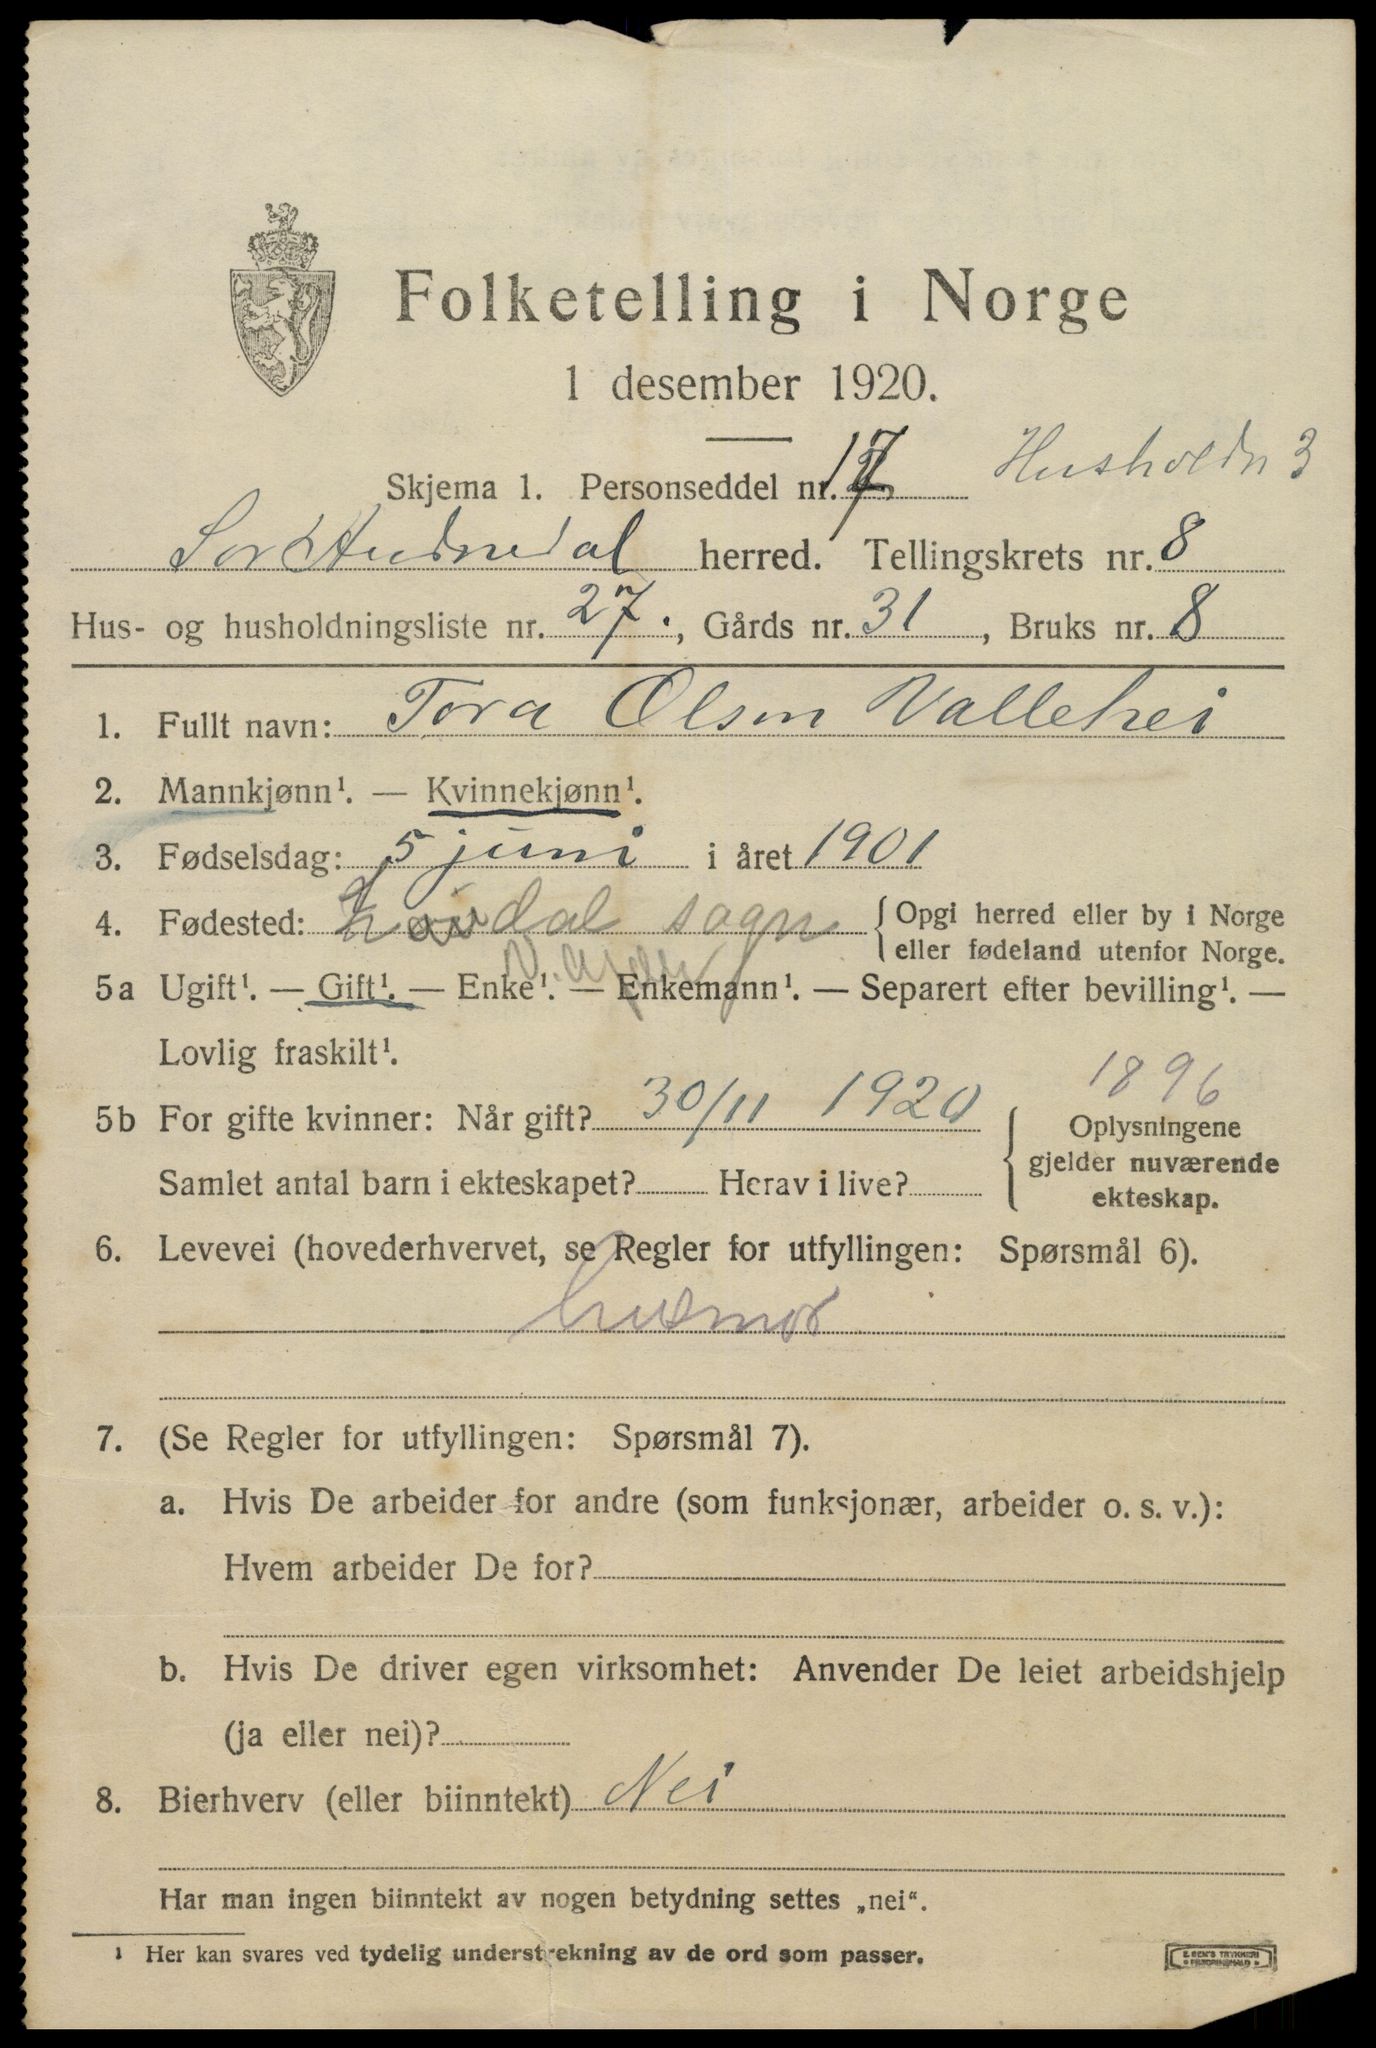 Folketelling i Norge
1 desember 1920.
Skjema 1. Personseddel nr. 17 Husholdn 3
Sør Audnedal herred. Tellingskrets nr. 8
Hus- og husholdningsliste nr. 27., Gårds nr. 31, Bruks nr. 8
1. Fullt navn: Tora Olsen Vallehei
2. Mannkjønn¹. — Kvinnekjønn¹.
3. Fødselsdag: 5 juni i året 1901
4. Fødested: sogn Opgi herred eller by i Norge
eller fødeland utenfor Norge.
5a Ugift¹. — Gift¹. — Enke¹. — Enkemann¹. — Separert efter bevilling¹. —
Lovlig fraskilt¹.
1896
5b For gifte kvinner: Når gift? 30/11 1920 Oplysningene
gjelder nuværende
Samlet antal barn i ekteskapet? Herav i live?
ekteskap.
6. Levevei (hovederhvervet, se Regler for utfyllingen: Spørsmål 6).
husmor
7. (Se Regler for utfyllingen: Spørsmål 7).
a. Hvis De arbeider for andre (som funksjonær, arbeider o. s. v.):
Hvem arbeider De for?
b. Hvis De driver egen virksomhet: Anvender De leiet arbeidshjelp
(ja eller nei)?
8. Bierhverv (eller biinntekt) Nei
Har man ingen biinntekt av nogen betydning settes „nei“.
¹ Her kan svares ved tydelig understrekning av de ord som passer.